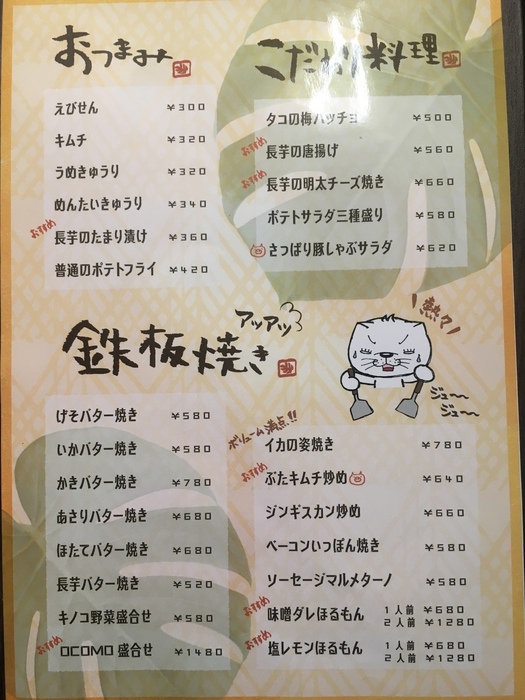 おつまみ
えびせん ￥300
キムチ ￥320
うめきゅうり ￥320
めんたいきゅうり ￥340
おすすめ
長芋のたまり漬け ￥360
普通のポテトフライ ￥420
こだわり料理
タコの梅パッチョ ￥500
おすすめ
長芋の唐揚げ ￥560
おすすめ
長芋の明太チーズ焼き ￥660
ポテトサラダ三種盛り ￥580
さっぱり豚しゃぶサラダ ￥620
鉄板焼き
アツアツ
熱々
ジュ～
ジュ～
げそバター焼き ￥580
いかバター焼き ￥580
かきバター焼き ￥780
あさりバター焼き ￥680
ほたてバター焼き ￥680
長芋バター焼き ￥520
キノコ野菜盛合せ ￥580
おすすめ
OCOMO 盛合せ ￥1480
ボリューム満点!!
イカの姿焼き ￥780
おすすめ
ぶたキムチ炒め ￥640
ジンギスカン炒め ￥660
ベーコンいっぽん焼き ￥580
ソーセージマルメターノ ￥580
おすすめ
味噌ダレほるもん 1人前 ￥680
2人前 ￥1280
おすすめ
塩レモンほるもん 1人前 ￥680
2人前 ￥1280